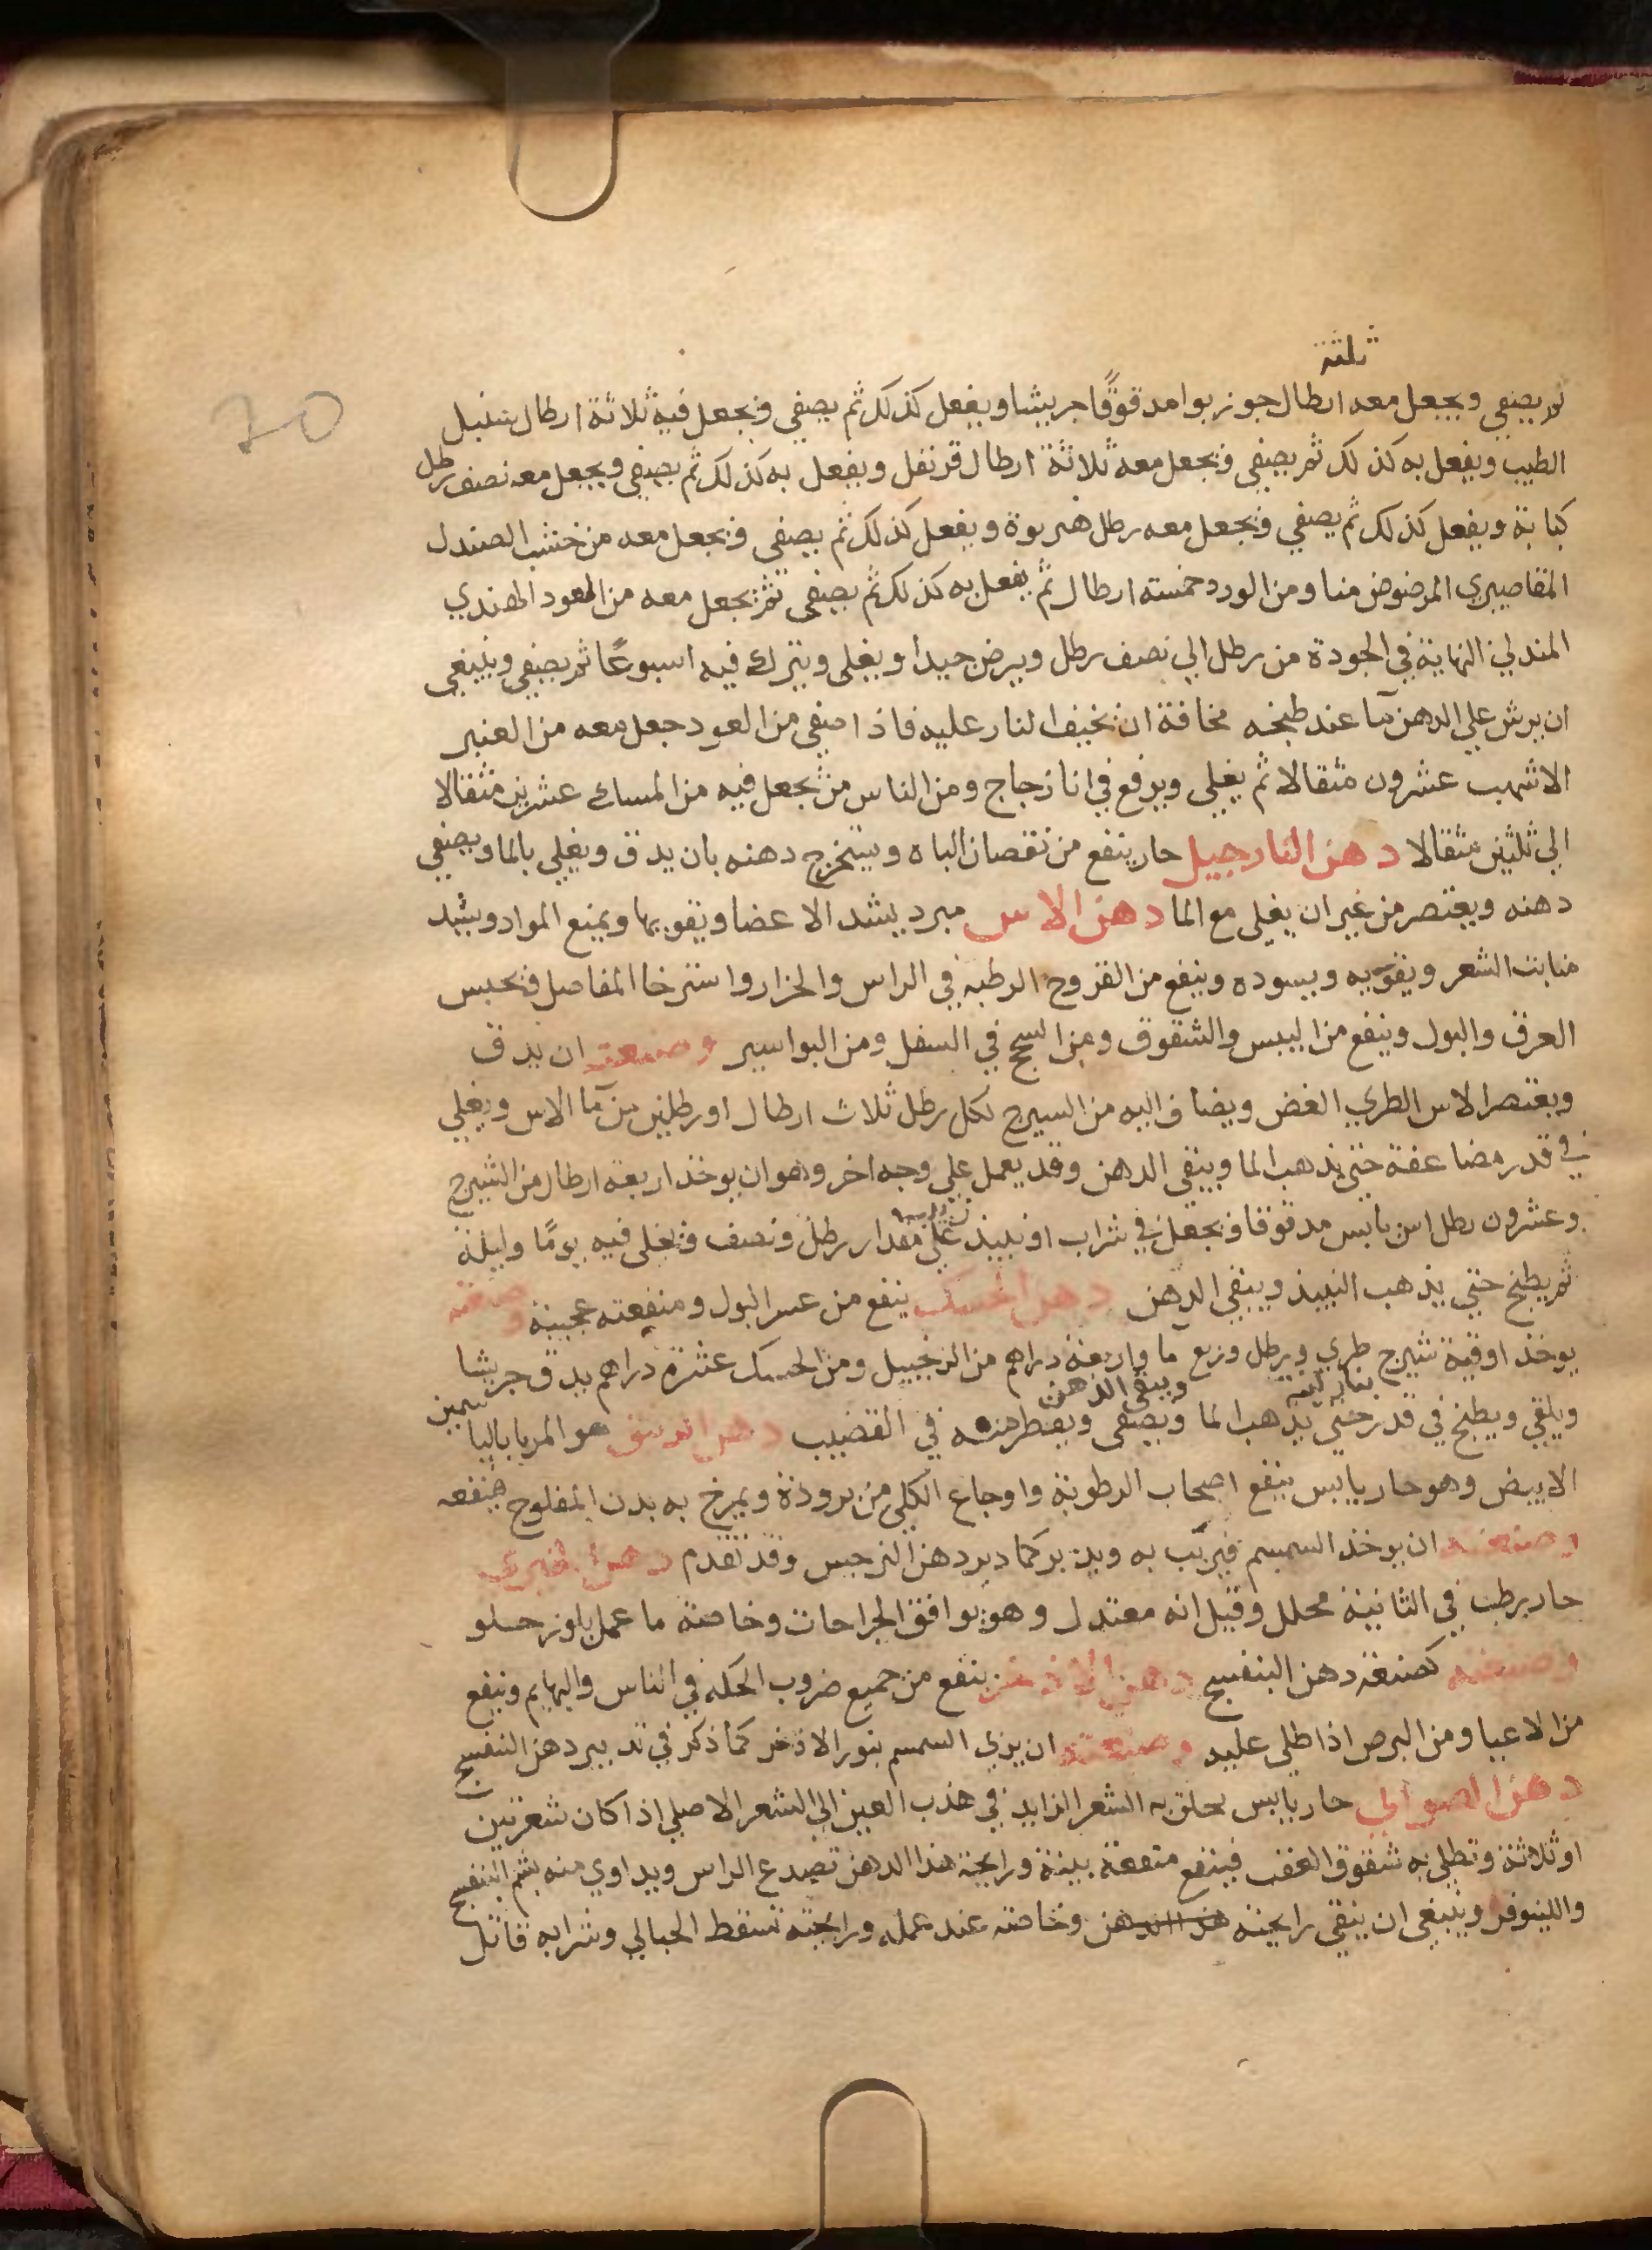 70
ثلثة
ثم يصفي ويجعل معه ارطال جوز بوا مدقوقًا جريشا ويفعل كذلك ثم يصفي ويجعل فيه ثلاثة ارطال سنبل
الطيب ويفعل به كذلك ثم يصفي ويجعل معه ثلاثة ارطال قرنفل ويفعل به كذلك ثم يصفي ويجعل معه نصف رطل
كبابة ويفعل كذلك ثم يصفي ويجعل معه رطل هربوة ويفعل كذلك ثم يصفي ويجعل معه من خشب الصندل
المقاصيري المرضوض منا ومن الورد خمسته ارطال ثم يفعل به كذلك ثم يصفي ثم يجعل معه من العود الهندي
المندلي النهاية في الجودة من رطل الي نصف رطل ويرض جيدا ويغلي ويترك فيه اسبوعًا ثم يصفي وينبغي
ان يرش علي الدهن مآ عند طبخه مخافة ان تخيف النار عليه فاذا صفي من العود جعل معه من العنبر
الاشهب عشرون مثقالا ثم يغلي ويرفع في انا زجاج ومن الناس من يجعل فيه من المسك عشرين مثقالا
الي ثلثين مثقالا دهن النارجيل حار ينفع من نقصان الباه ويستخرج دهنه بان يدق ويغلي بالما ويصفي
دهنه ويعتصر من غير ان يغلي مع الما دهن الاس مبرد يشد الاعضا ويقويها ويمنع المواد ويشد
منابت الشعر ويقويه ويسوده وينفع من القروح الرطبه في الراس والحزاز واسترخا المفاصل ويحبس
العرق والبول وينفع من اليبس والشقوق ومن السحج في السفل ومن البواسير وصنعته ان يدق
ويعتصر الاس الطري الغض ويضاف اليه من السيرج لكل رطل ثلاث ارطال او رطلين من مآ الاس ويغلي
في قدر مضاعفة حتي يذهب الما ويبقي الدهن وقد يعمل علي وجه اخر وهو ان يوخذ اربعة ارطال من الشيرج
وعشرون رطل اس يابس مدقوقا ويجعل في شراب او نبيذ علي مقدار رطل ونصف ويغلي فيه يومًا وليلة
ثم يطبخ حتي يذهب النبيذ ويبقي الدهن دهن الحسك ينفع من عسر البول ومنفعته عجيبة وصنعته
يوخذ اوقية شيرج طري ورطل وربع ما واربعة دراهم من الزنجبيل ومن الحسك عشرة دراهم يدق جريشا
بنار لينة ويبقي الدهن
ويلقي ويطبخ في قدر حتي يذهب الما ويصفي ويقطر منه في القضيب دهن السوسن هو المربا بالياسمين
الابيض وهو حار يابس ينفع اصحاب الرطوبة واوجاع الكلي من برودة ويمرخ به بدن المفلوج فينفعه
وصنعته ان يوخذ السمسم فيربّب به ويدبر كما دبر دهن النرجس وقد تقدم دهن الخيري
حار رطب في الثانية محلل وقيل انه معتدل وهو يوافق الجراحات وخاصة ما عمل بلوز حلو
وصنعته كصنعة دهن البنفسج دهن الاذخر ينفع من جميع ضروب الحكه في الناس والبهايم وينفع
من الاعيا ومن البرص اذا طلي عليه وصنعته ان يربي السمسم بنور الاذخر كما ذكر في تدبير دهن البنفسج
دهن الصوالي حار يابس يحلق به الشعر الزايد في هذب العين الي الشعر الاصلي اذا كان شعرتين
او ثلاثة وتطلي به شقوق العقب فينفع منفعة بينة ورايحة هذا الدهن تصدع الراس ويداوي منه بشم البنفسج
واللينوفر وينبغي ان يتقي رايحته هذا الدهن وخاصته عند عمله ورايحته تسقط الحبالي وشرابه قاتل